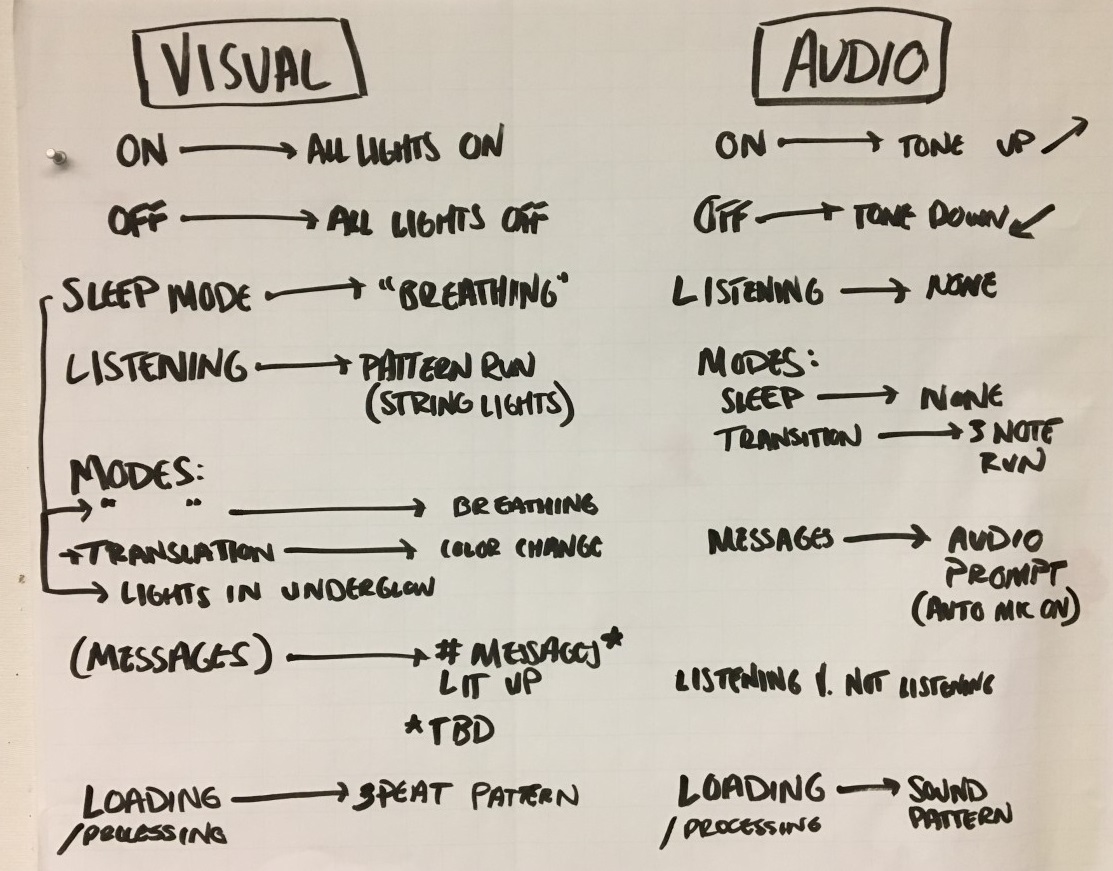 VISUAL
ON → ALL LIGHTS ON
OFF → ALL LIGHTS OFF
SLEEP MODE → "BREATHING"
LISTENING → PATTERN RUN
(STRING LIGHTS)
MODES:
→ " " → BREATHING
→ TRANSLATION → COLOR CHANGE
→ LIGHTS IN UNDERGLOW
(MESSAGES) → # MESSAGES*
LIT UP
*TBD
LOADING → 3PEAT PATTERN
/PROCESSING
AUDIO
ON → TONE UP ↗
OFF → TONE DOWN ↙
LISTENING → NONE
MODES:
SLEEP → NONE
TRANSITION → 3 NOTE
RUN
MESSAGES → AUDIO
PROMPT
(AUTO MIC ON)
LISTENING V. NOT LISTENING
LOADING → SOUND
/PROCESSING PATTERN